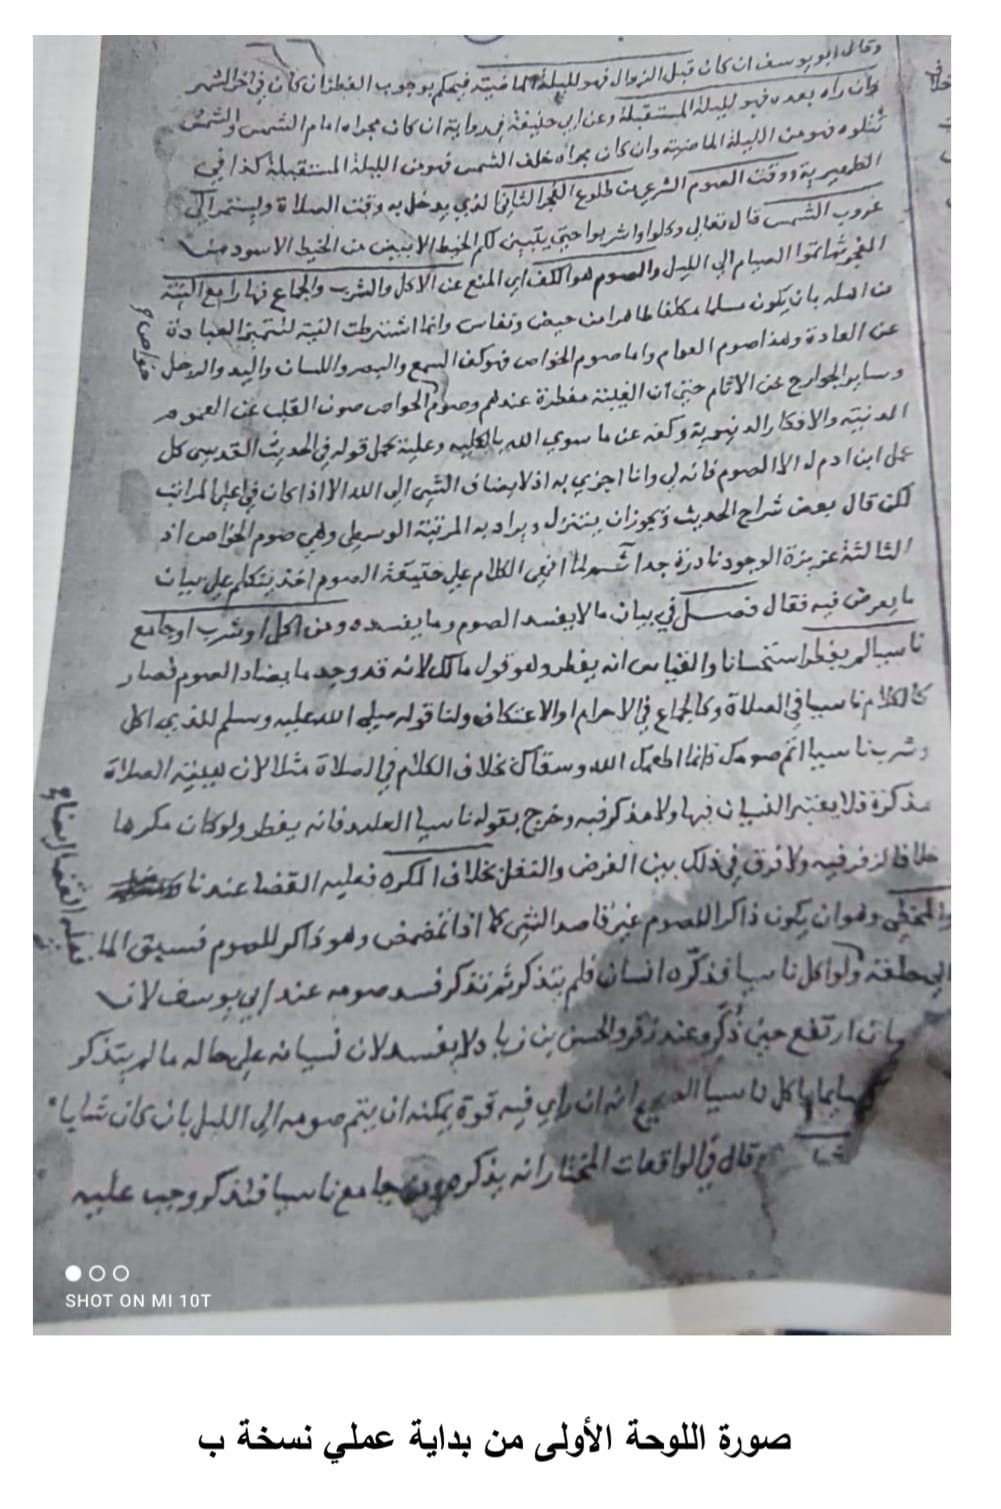 وقال ابو يوسف ان كان قبل الزوال فهو لليلة الماضية فيحكم بوجوب الفطر ان كان في اخر الشهر
وان راه بعده فهو لليلة المستقبلة وعن ابي حنيفة في رواية ان كان مجراه امام الشمس والشمس
تتلوه فهو من الليلة الماضية وان كان مجراه خلف الشمس فهو من الليلة المستقبلة كذا في
الظهيرية ووقت الصوم الشرعي من طلوع الفجر الثاني الذي يدخل به وقت الصلاة ويستمر الى
غروب الشمس قال تعالى وكلوا واشربوا حتى يتبين لكم الخيط الابيض من الخيط الاسود من
الفجر ثم اتموا الصيام الى الليل والصوم هو الكف اي المنع عن الاكل والشرب والجماع نهارا مع النية
من اهله بان يكون مسلما مكلفا طاهرا من حيض ونفاس وانما اشترطت النية لتتميز العبادة
عن العادة وهذا صوم العوام واما صوم الخواص فهو كف السمع والبصر واللسان واليد والرجل
وساير الجوارح عن الاثام حتى ان الغيبة مفطرة عندهم وصوم الخواص صون القلب عن الهموم
الدنية والافكار الدنيوية وكفه عن ما سوي الله بالكلية وعليه يحمل قوله في الحديث القدسي كل
عمل ابن ادم له الا الصوم فانه لي وانا اجزي به اذ لا يضاف الشي الى الله الا اذا كان في اعلى المراتب
لكن قال بعض شراح الحديث ويجوز ان يتنزل ويراد به المرتبة الوسطى وهي صوم الخواص اذ
الثالثة عزيزة الوجود نادرة جدا ثم لما انهى الكلام على حقيقة الصوم اخذ يتكلم على بيان
ما يعرض فيه فقال فصل في بيان ما لا يفسد الصوم وما يفسده ومن اكل او شرب او جامع
ناسيا لم يفطر استحسانا والقياس انه يفطر وهو قول مالك لانه قد وجد ما يضاد الصوم فصار
كالكلام ناسيا في الصلاة وكالجماع في الاحرام والاعتكاف ولنا قوله صلى الله عليه وسلم للذي اكل
وشرب ناسيا اتم صومك فانما اطعمك الله وسقاك بخلاف الكلام في الصلاة مثلا لان هيئة الصلاة
مذكرة فلا يعتبر النسيان فيها ولا مذكر فيه وخرج بقوله ناسيا العامد فانه يفطر ولو كان مكرها
خلافا لزفر فيه ولا فرق في ذلك بين الفرض والنفل بخلاف المكره فعليه القضا عندنا
والمخطي وهو ان يكون ذاكرا للصوم غير قاصد الشي كما اذا تمضمض وهو ذاكر للصوم فسبق الما
الى حلقه ولو اكل ناسيا فذكره انسان فلم يتذكر ثم تذكر فسد صومه عند ابي يوسف لان
ارتفع حين ذكر وعند زفر والحسن بن زياد لا يفسد لان نسيانه على حاله ما لم يتذكر
ياكل ناسيا الصحيح انه ان راي فيه قوة يمكنه ان يتم صومه الى الليل بان كان شابا
وقال في الواقعات المختار انه يذكره جامع ناسيا فتذكر وجب عليه
خواص
فعليه القضا ايضا
SHOT ON MI 10T
صورة اللوحة الأولى من بداية عملي نسخة ب